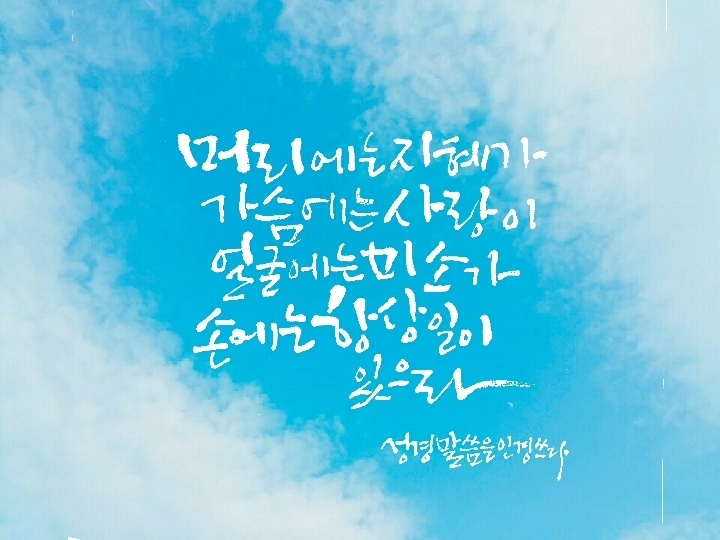 머리에는 지혜가
가슴에는 사랑이
얼굴에는 미소가
손에는 항상 일이
있으라
성경말씀을 인경쓰다